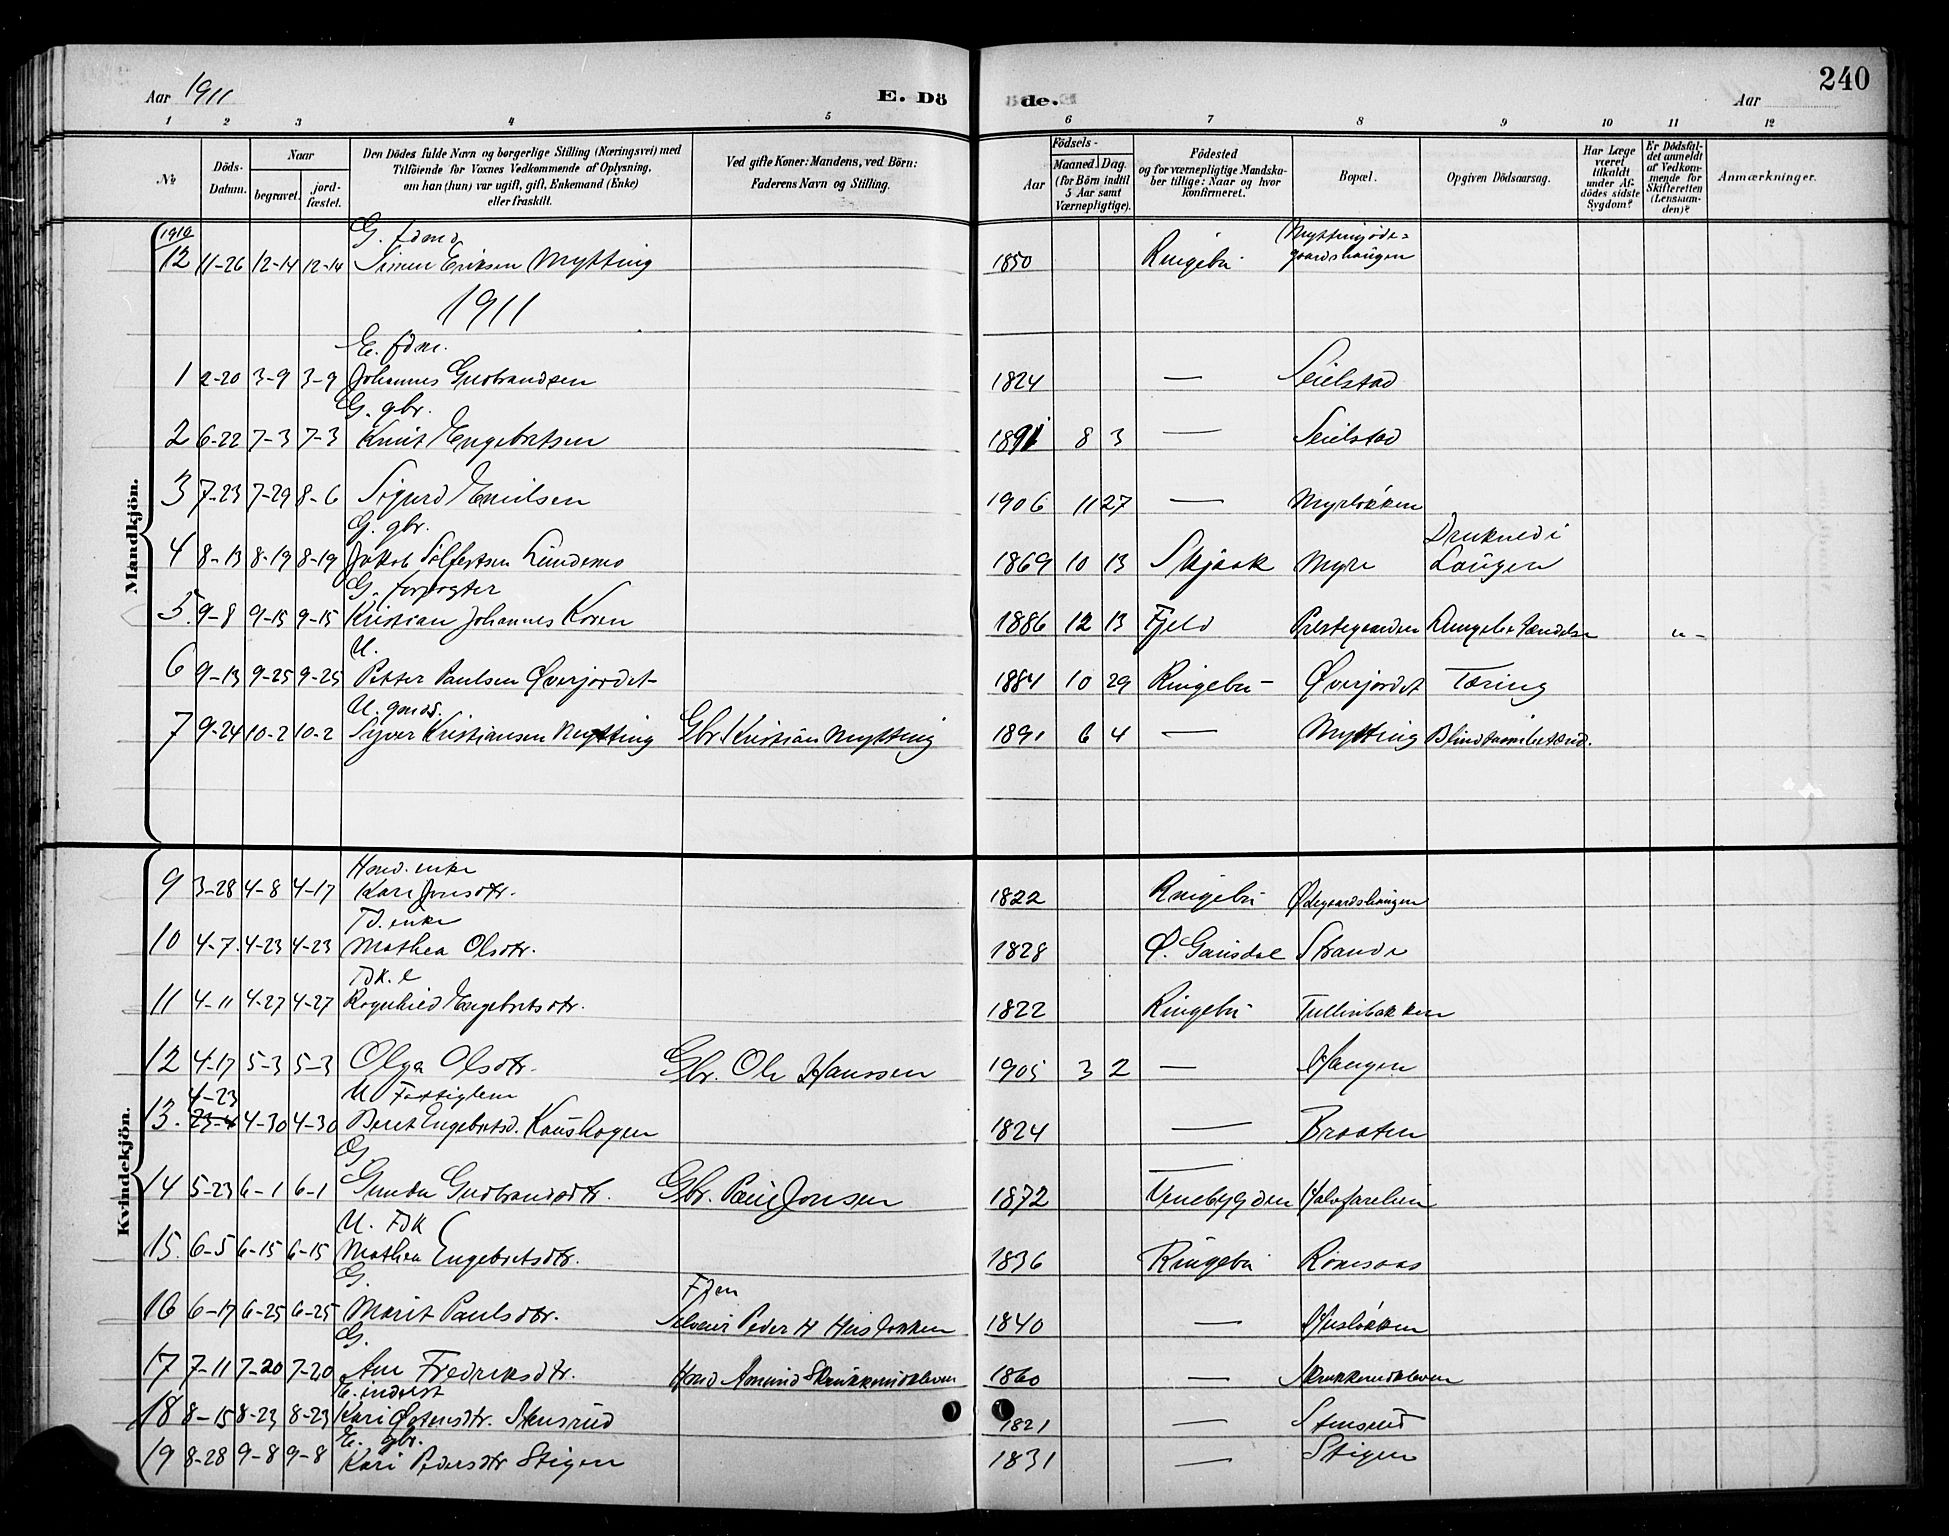 240
Aar 1911 E. Dö de. Aar
1 2 3 4 5 6 7 8 9 10 11 12
№ Döds-Datum. Naar begravet. jord-fæstet. Den Dödes fulde Navn og borgerlige Stilling (Næringsvei) med Tilföiende for Voxnes Vedkommende af Oplysning, om han (hun) var ugift, gift, Enkemand (Enke) eller fraskilt. Ved gifte Koner: Mandens, ved Børn: Faderens Navn og Stilling. Födsels- Aar Maaned. Dag. (for Börn indtil 5 Aar samt Værnepligtige). Födested og for værnepligtige Mandskaber tillige: Naar og hvor konfirmeret. Bopæl. Opgiven Dödsaarsag. Har Læge været tilkaldt under Afdödes sidste Sygdom? Er Dödsfaldet anmeldt af Vedkommende for Skifteretten (Lensmanden)? Anmærkninger.
Mandkjön.
1910 G. fdmd
12 11-26 12-14 12-14 Simen Eriksen Mytting 1850 Ringebu Myttingöde=gaardshaugen
1911
E. fdm.
1 2-20 3-9 3-9 Johannes Gudbrandsen 1824 — Seielstad
G. gbr.
2 6-22 7-3 7-3 Knut Engebretsen 1891 8 3 — Seielstad
3 7-23 7-29 8-6 Sigurd Emilsen 1906 11 27 — Myrløkken
G. gbr. Drukned i
4 8-13 8-19 8-19 Jakob Sølfestsen Lundemo 1869 10 13 Skjaak Myre Laugen
G. forpagter
5. 9-8 9-15 9-15 Kristian Johannes Koren 1886 12 13 Fjeld Prestegaarden Lungebetændelse "-
U.
6 9-13 9-25 9-25 Petter Paulsen Øverjordet 1884 10 29 Ringebu Øverjordet Tæring
U. gmds.
7 9-24 10-2 10-2 Syver Kristiansen Mytting Gbr. Kristian Mytting 1891 6 4 — Mytting Blindtarmbetænd.
Kvindekjön.
Hmd. enke
9 3-28 4-8 4-17 Kari Jonsdtr. 1822 Ringebu Ødegaardshaugen
Fd. enke
10 4-7. 4-23 4-23 Mathea Olsdtr. 1828 Ø. Gausdal Strande
Fdk. e
11 4-11 4-27 4-27 Ragnhild Engebretsdtr. 1822 Ringebu Tullinbakken
12 4-17 5-3 5-3 Olga Olsdtr. Gbr. Ole Hanssen 1905 3 2 — Haugen
4-23 U. Fattiglem
13. 23-4 4-30 4-30 Beret Engebretsd. Kaushagen 1824 — Braaten
G.
14 5-23 6-1 6-1 Gunda Gudbrandsdtr. Gbr. Paul Jonsen 1872 Venebygden Halvfarelien
U. Fdk
15. 6-5 6-15 6-15 Mathea Engebretsdtr. 1836 Ringebu Romsaas
G. Fden
16 6-17 6-25 6-25 Marit Paulsdtr. Selveier Peder H Husløkken 1840 — Husløkken
G.
17 7-11 7-20 7-20 Ane Fredriksdtr. Hmd Amund Skrukkerudkleven 1860 — Skrukkerudkleven
E. inderst
18 8-15 8-23 8-23 Kari Østensdtr. Stensrud 1821 — Stensrud
E. gbr.
19 8-28 9-8 9-8 Kari Pedersdtr Stigen 1831 — Stigen